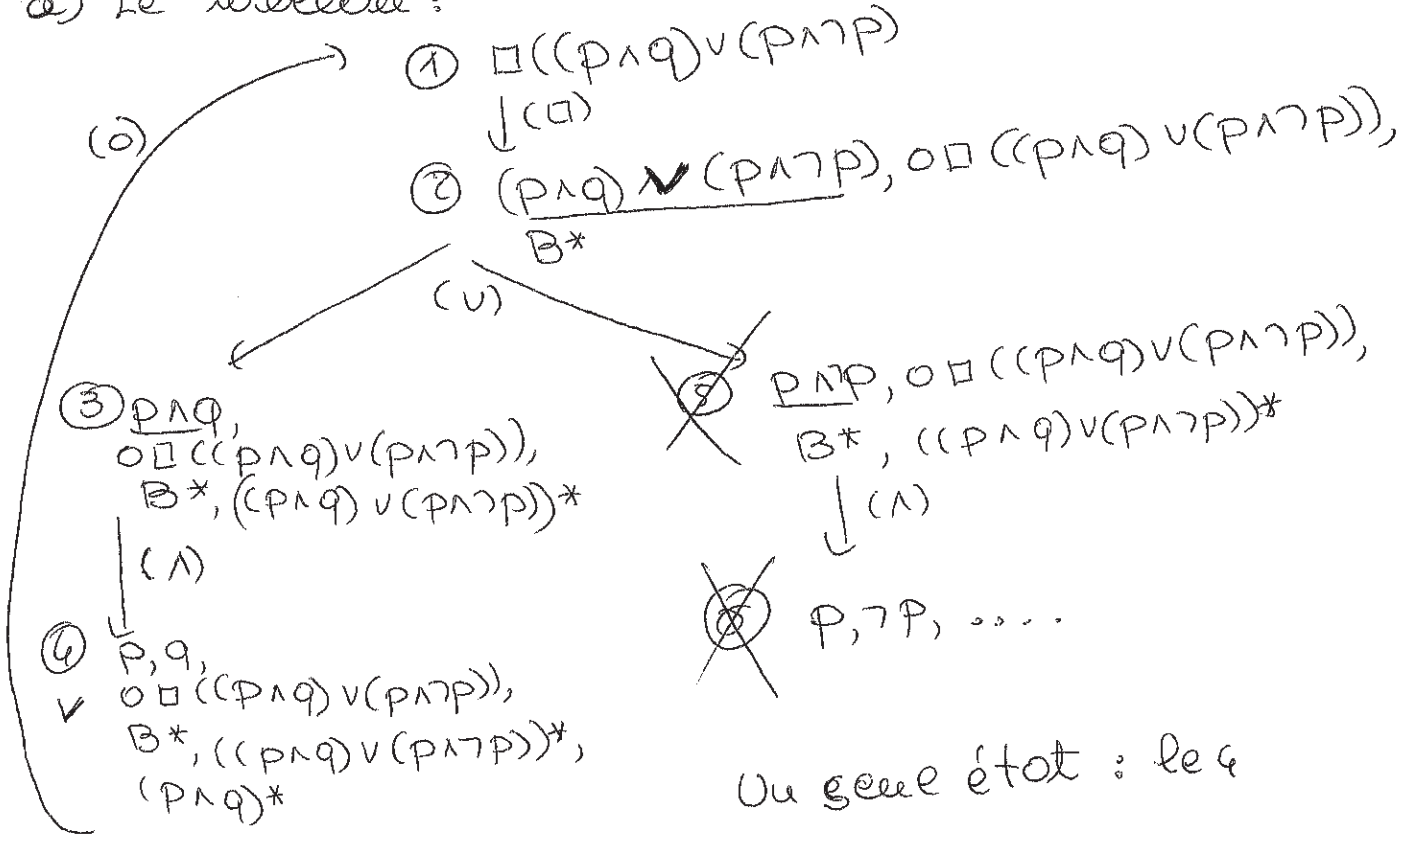 a) Le
① □((p∧q)∨(p∧¬p)
(○)
↓(□)
② (p∧q) ∨ (p∧¬p), ○□((p∧q)∨(p∧¬p)),
B*
(∨)
③ p∧q,
○□((p∧q)∨(p∧¬p)),
B*, ((p∧q)∨(p∧¬p))*
(∧)
⑤ p∧¬p, ○□((p∧q)∨(p∧¬p)),
B*, ((p∧q)∨(p∧¬p))*
(∧)
④ p, q,
✓ ○□((p∧q)∨(p∧¬p)),
B*, ((p∧q)∨(p∧¬p))*,
(p∧q)*
⑥ p, ¬p, .....
Un seul état : le 4